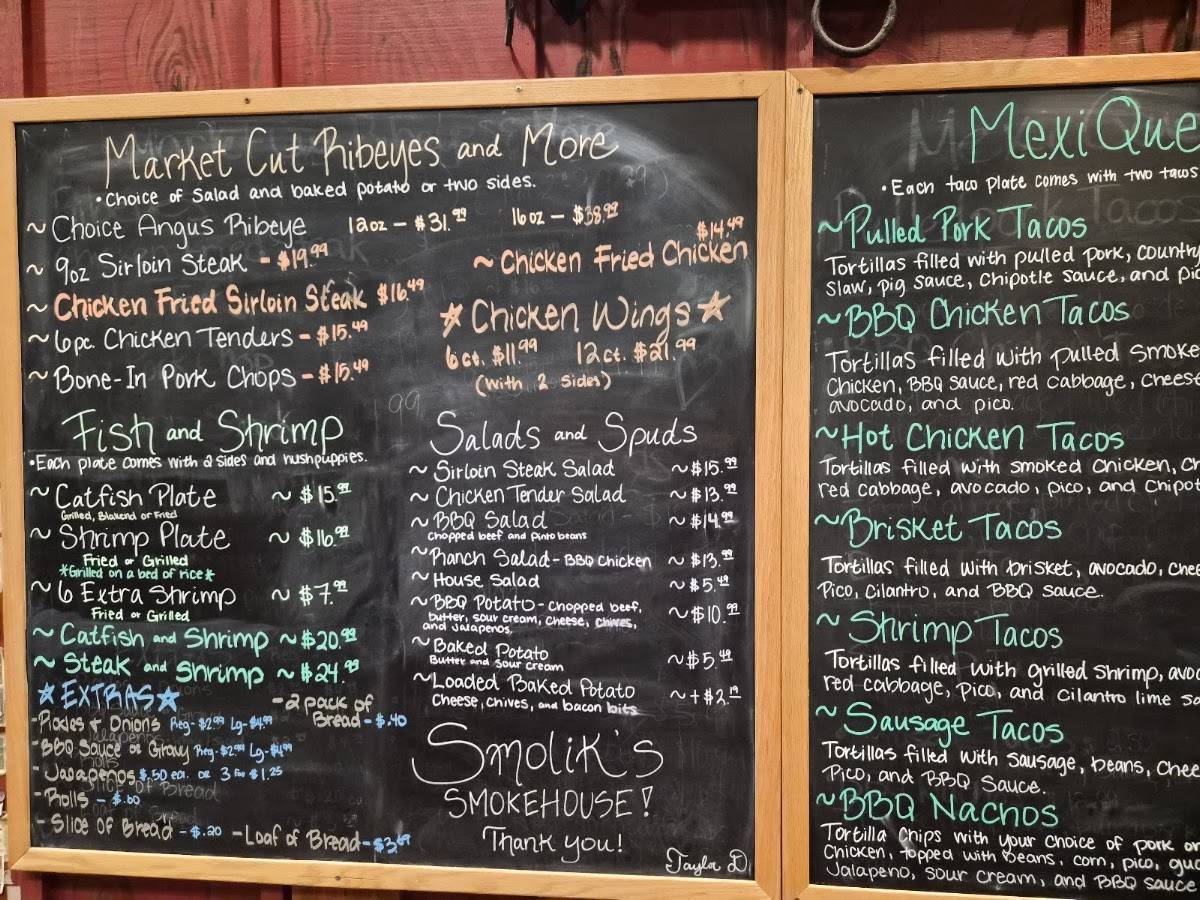 Market Cut Ribeyes and More
• Choice of Salad and baked potato or two sides.
~ Choice Angus Ribeye 12oz - $31.99 16oz - $38.99
~ 9oz Sirloin Steak - $19.99
~ Chicken Fried Chicken $14.49
~ Chicken Fried Sirloin Steak $16.49
~ 6pc. Chicken Tenders - $15.49
~ Bone-In Pork Chops - $15.49
★ Chicken Wings ★
6ct. $11.99 12ct. $21.99
(with 2 sides)
Fish and Shrimp
• Each plate comes with 2 sides and hushpuppies.
~ Catfish Plate ~ $15.99
Grilled, Blakend or Fried
~ Shrimp Plate ~ $16.99
Fried or Grilled
*Grilled on a bed of rice*
~ 6 Extra Shrimp ~ $7.99
Fried or Grilled
~ Catfish and Shrimp ~ $20.99
~ Steak and Shrimp ~ $24.99
★ EXTRAS ★
- Pickles & Onions Reg - $2.99 Lg - $4.99
- BBQ Sauce or Gravy Reg - $2.99 Lg - $4.99
- Jalapenos $.50 ea. or 3 for $1.25
- Rolls - $.60
- Slice of Bread - $.20
- 2 pack of
Bread - $.40
- Loaf of Bread - $3.69
Salads and Spuds
~ Sirloin Steak Salad ~ $15.99
~ Chicken Tender Salad ~ $13.99
~ BBQ Salad ~ $14.99
Chopped beef and pinto beans
~ Ranch Salad - BBQ Chicken ~ $13.99
~ House Salad ~ $5.49
~ BBQ Potato - chopped beef, ~ $10.99
butter, sour cream, cheese, chives,
and jalapenos.
~ Baked Potato ~ $5.49
Butter and Sour cream
~ Loaded Baked Potato ~ + $2.19
Cheese, chives, and bacon bits
Smolik's
SMOKEHOUSE!
Thank you!
Tayla D
MexiQue
• Each taco plate comes with two tacos
~ Pulled Pork Tacos
Tortillas filled with pulled pork, country
Slaw, pig sauce, Chipotle sauce, and pic
~ BBQ Chicken Tacos
Tortillas filled with pulled smoke
Chicken, BBQ sauce, red cabbage, cheese
avocado, and pico.
~ Hot Chicken Tacos
Tortillas filled with smoked chicken, ch
red cabbage, avocado, pico, and chipot
~ Brisket Tacos
Tortillas filled with brisket, avocado, chee
Pico, cilantro, and BBQ sauce.
~ Shrimp Tacos
Tortillas filled with grilled shrimp, avoc
red cabbage, pico, and cilantro lime sa
~ Sausage Tacos
Tortillas filled with sausage, beans, chee
Pico, and BBQ Sauce.
~ BBQ Nachos
Tortilla chips with your choice of pork or
Chicken, topped with beans, corn, pico, gu
Jalapeno, sour cream, and BBQ sauce